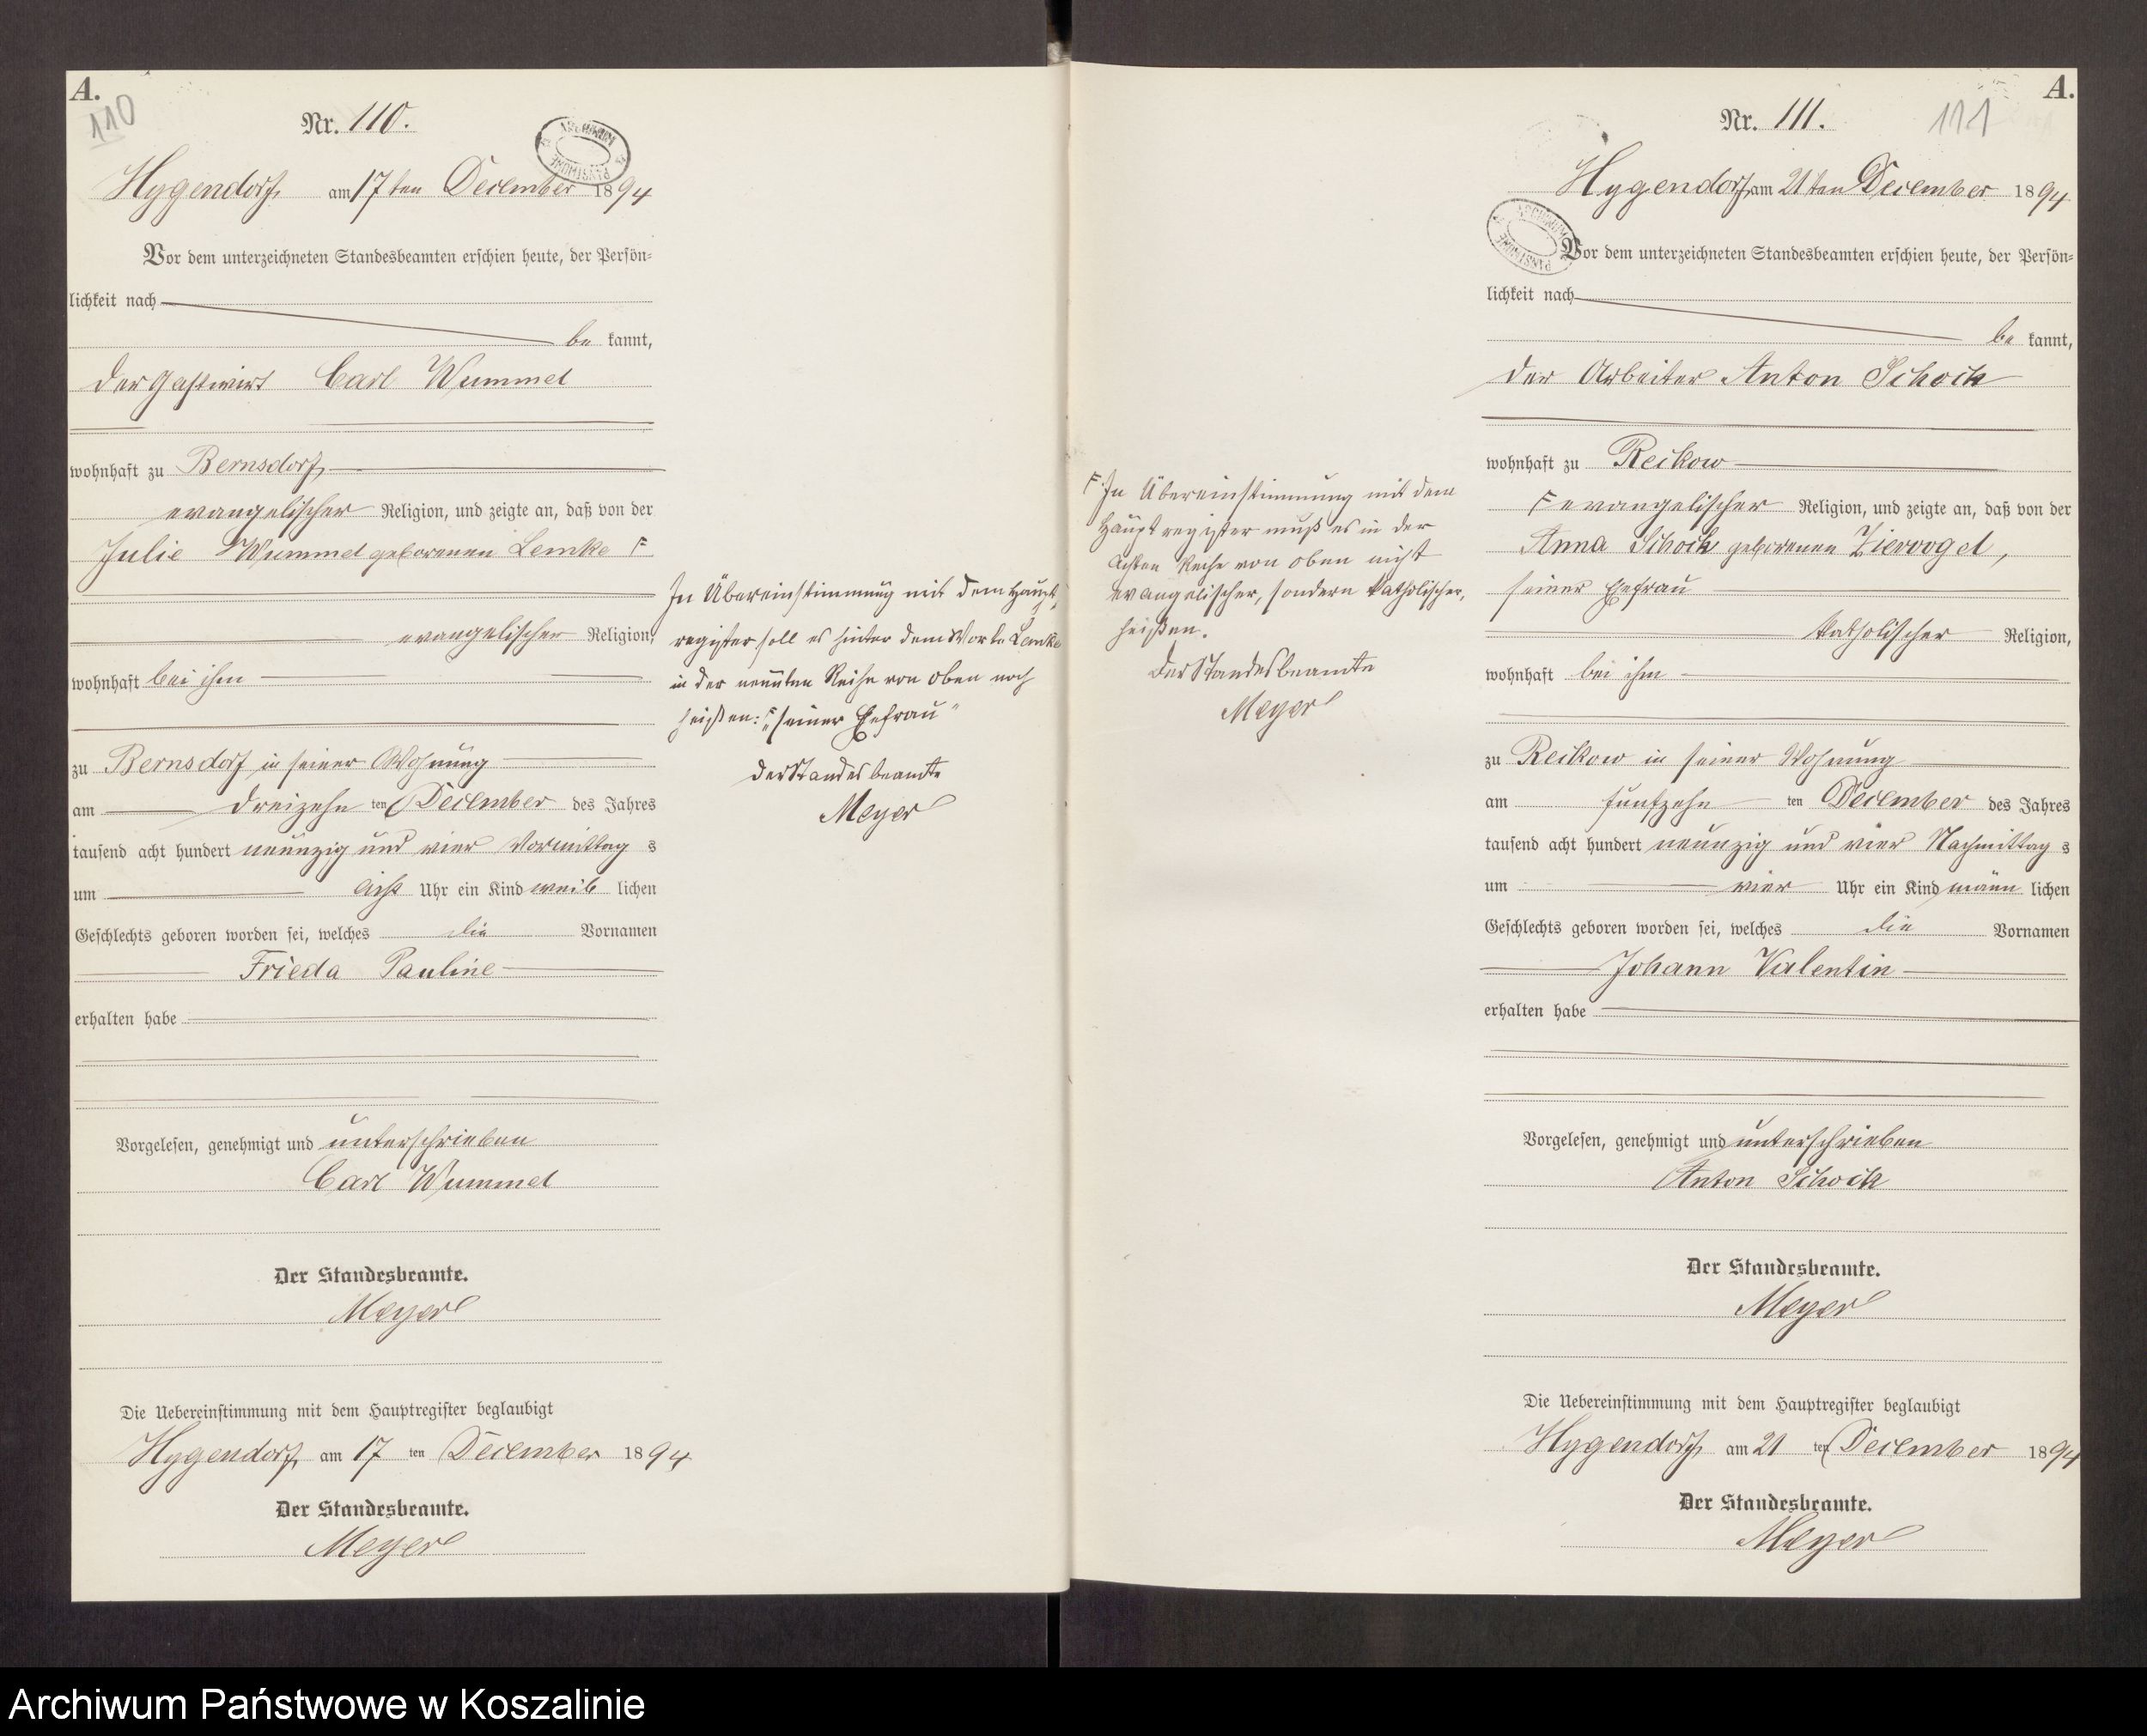 A.
110
Nr. 110.
Hygendorf, am 17ten December 1894
Vor dem unterzeichneten Standesbeamten erschien heute, der Persön-
lichkeit nach
be kannt,
der Gastwirt Carl Wummel
wohnhaft zu Bernsdorf,
evangelischer Religion, und zeigte an, daß von der
Julie Wummel geborenen Lemke F
evangelischer Religion,
wohnhaft bei ihm
zu Bernsdorf in seiner Wohnung
am dreizehn ten December des Jahres
tausend acht hundert neunzig und vier Vormittag s
um acht Uhr ein Kind weib lichen
Geschlechts geboren worden sei, welches die Vornamen
Frieda Pauline
erhalten habe
Vorgelesen, genehmigt und unterschrieben
Carl Wummel
Der Standesbeamte.
Meyer
Die Uebereinstimmung mit dem Hauptregister beglaubigt
Hygendorf, am 17 ten December 1894
Der Standesbeamte.
Meyer
In Übereinstimmung mit dem Haupt-
register soll es hinter dem Worte Lemke
in der neunten Reihe von oben noch
heißen: F „seiner Ehefrau"
Der Standesbeamte
Meyer
F In Übereinstimmung mit dem
Hauptregister muß es in der
achten Reihe von oben nicht
evangelischer, sondern katholischer,
heißen.
Der Standesbeamte
Meyer
A.
111
Nr. 111.
Hygendorf, am 21ten December 1894
Vor dem unterzeichneten Standesbeamten erschien heute, der Persön-
lichkeit nach
be kannt,
der Arbeiter Anton Schock
wohnhaft zu Reikow
F evangelischer Religion, und zeigte an, daß von der
Anna Schock geborenen Ziervogel,
seiner Ehefrau
katholischer Religion,
wohnhaft bei ihm
zu Reikow in seiner Wohnung
am fünfzehn ten December des Jahres
tausend acht hundert neunzig und vier Nachmittag s
um vier Uhr ein Kind männ lichen
Geschlechts geboren worden sei, welches die Vornamen
Johann Valentin
erhalten habe
Vorgelesen, genehmigt und unterschrieben
Anton Schock
Der Standesbeamte.
Meyer
Die Uebereinstimmung mit dem Hauptregister beglaubigt
Hygendorf, am 21 ten December 1894
Der Standesbeamte.
Meyer
Archiwum Państwowe w Koszalinie